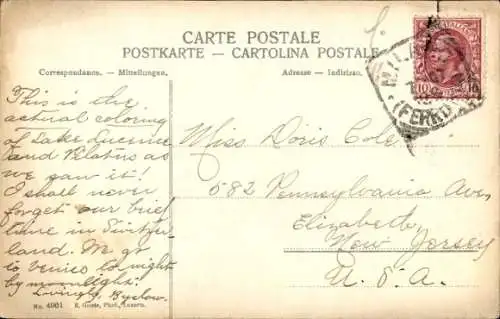 CARTE POSTALE
POSTKARTE - CARTOLINA POSTALE
Correspondance. - Mitteilungen.
Adresse - Indirizzo.
MILANO
(FERRO
10
This is the
actual coloring
of Lake Lucerne
and Pilatus as
we saw it!
I shall never
forget our brief
time in Switzer-
land. We go
to Venice to-night
by moonlight.
Lovingly,
Miss Doris Cole
582 Pennsylvania Ave,
Elizabeth,
New Jersey
U. S. A.
No. 4961 E. Goetz, Phot., Luzern.